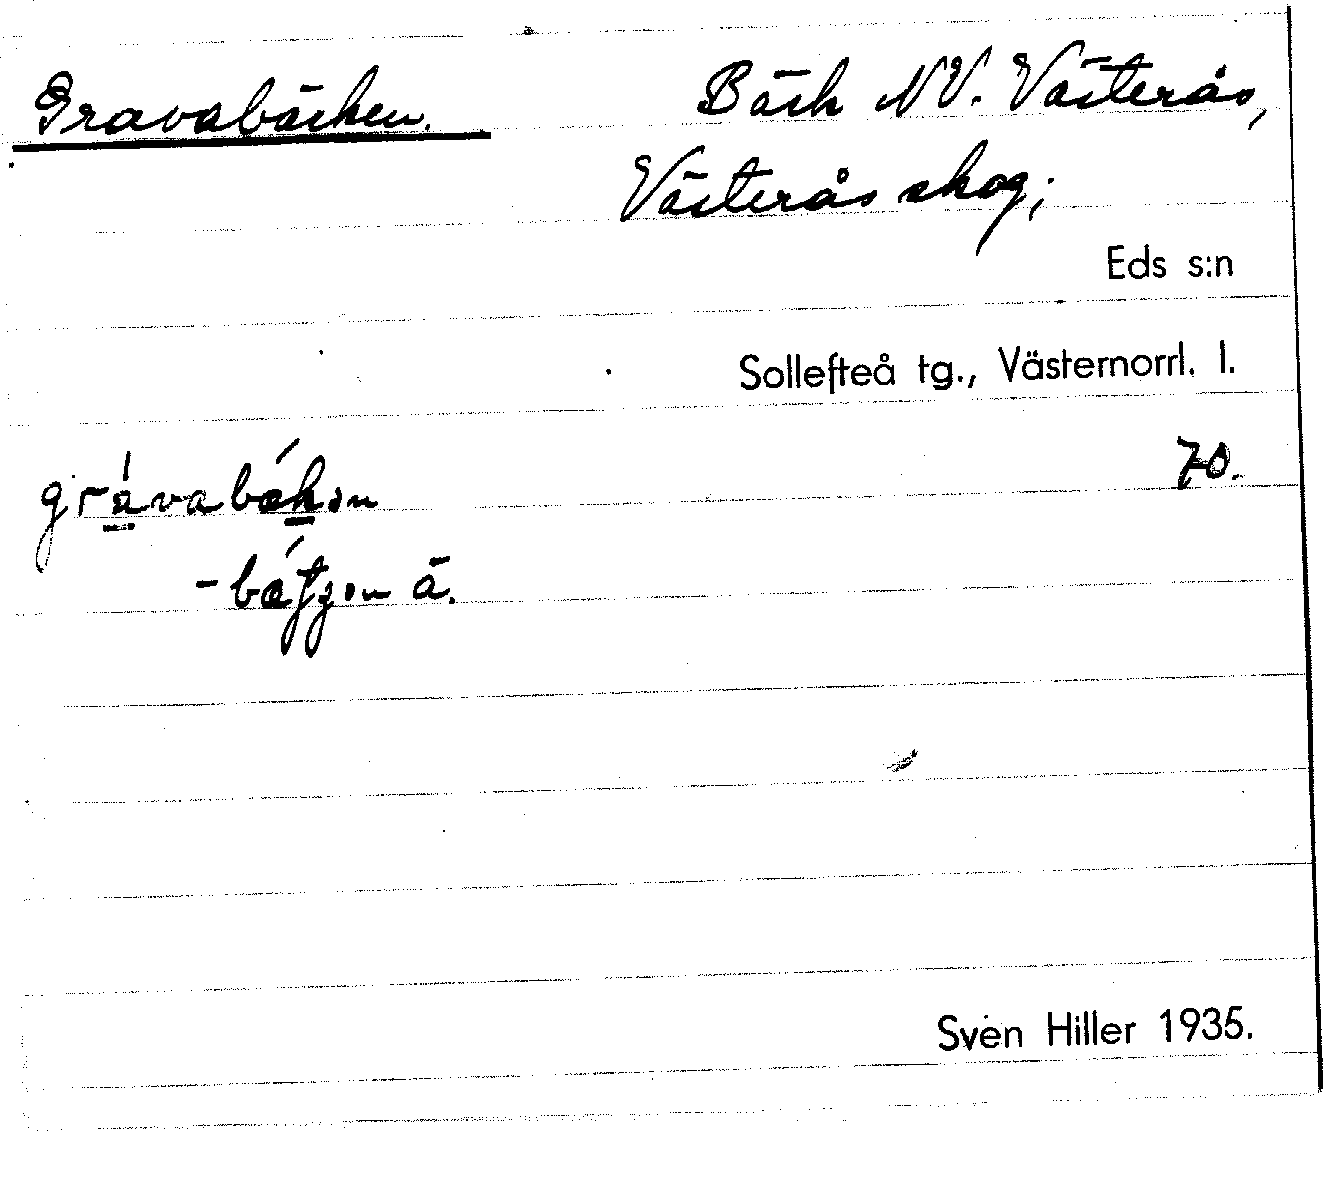 Gravabäcken. Bäck NV. Västerås,
Västerås skog;
Eds s:n
Sollefteå tg., Västernorrl. l.
70.
grávabækən
ä.
Sven Hiller 1935.